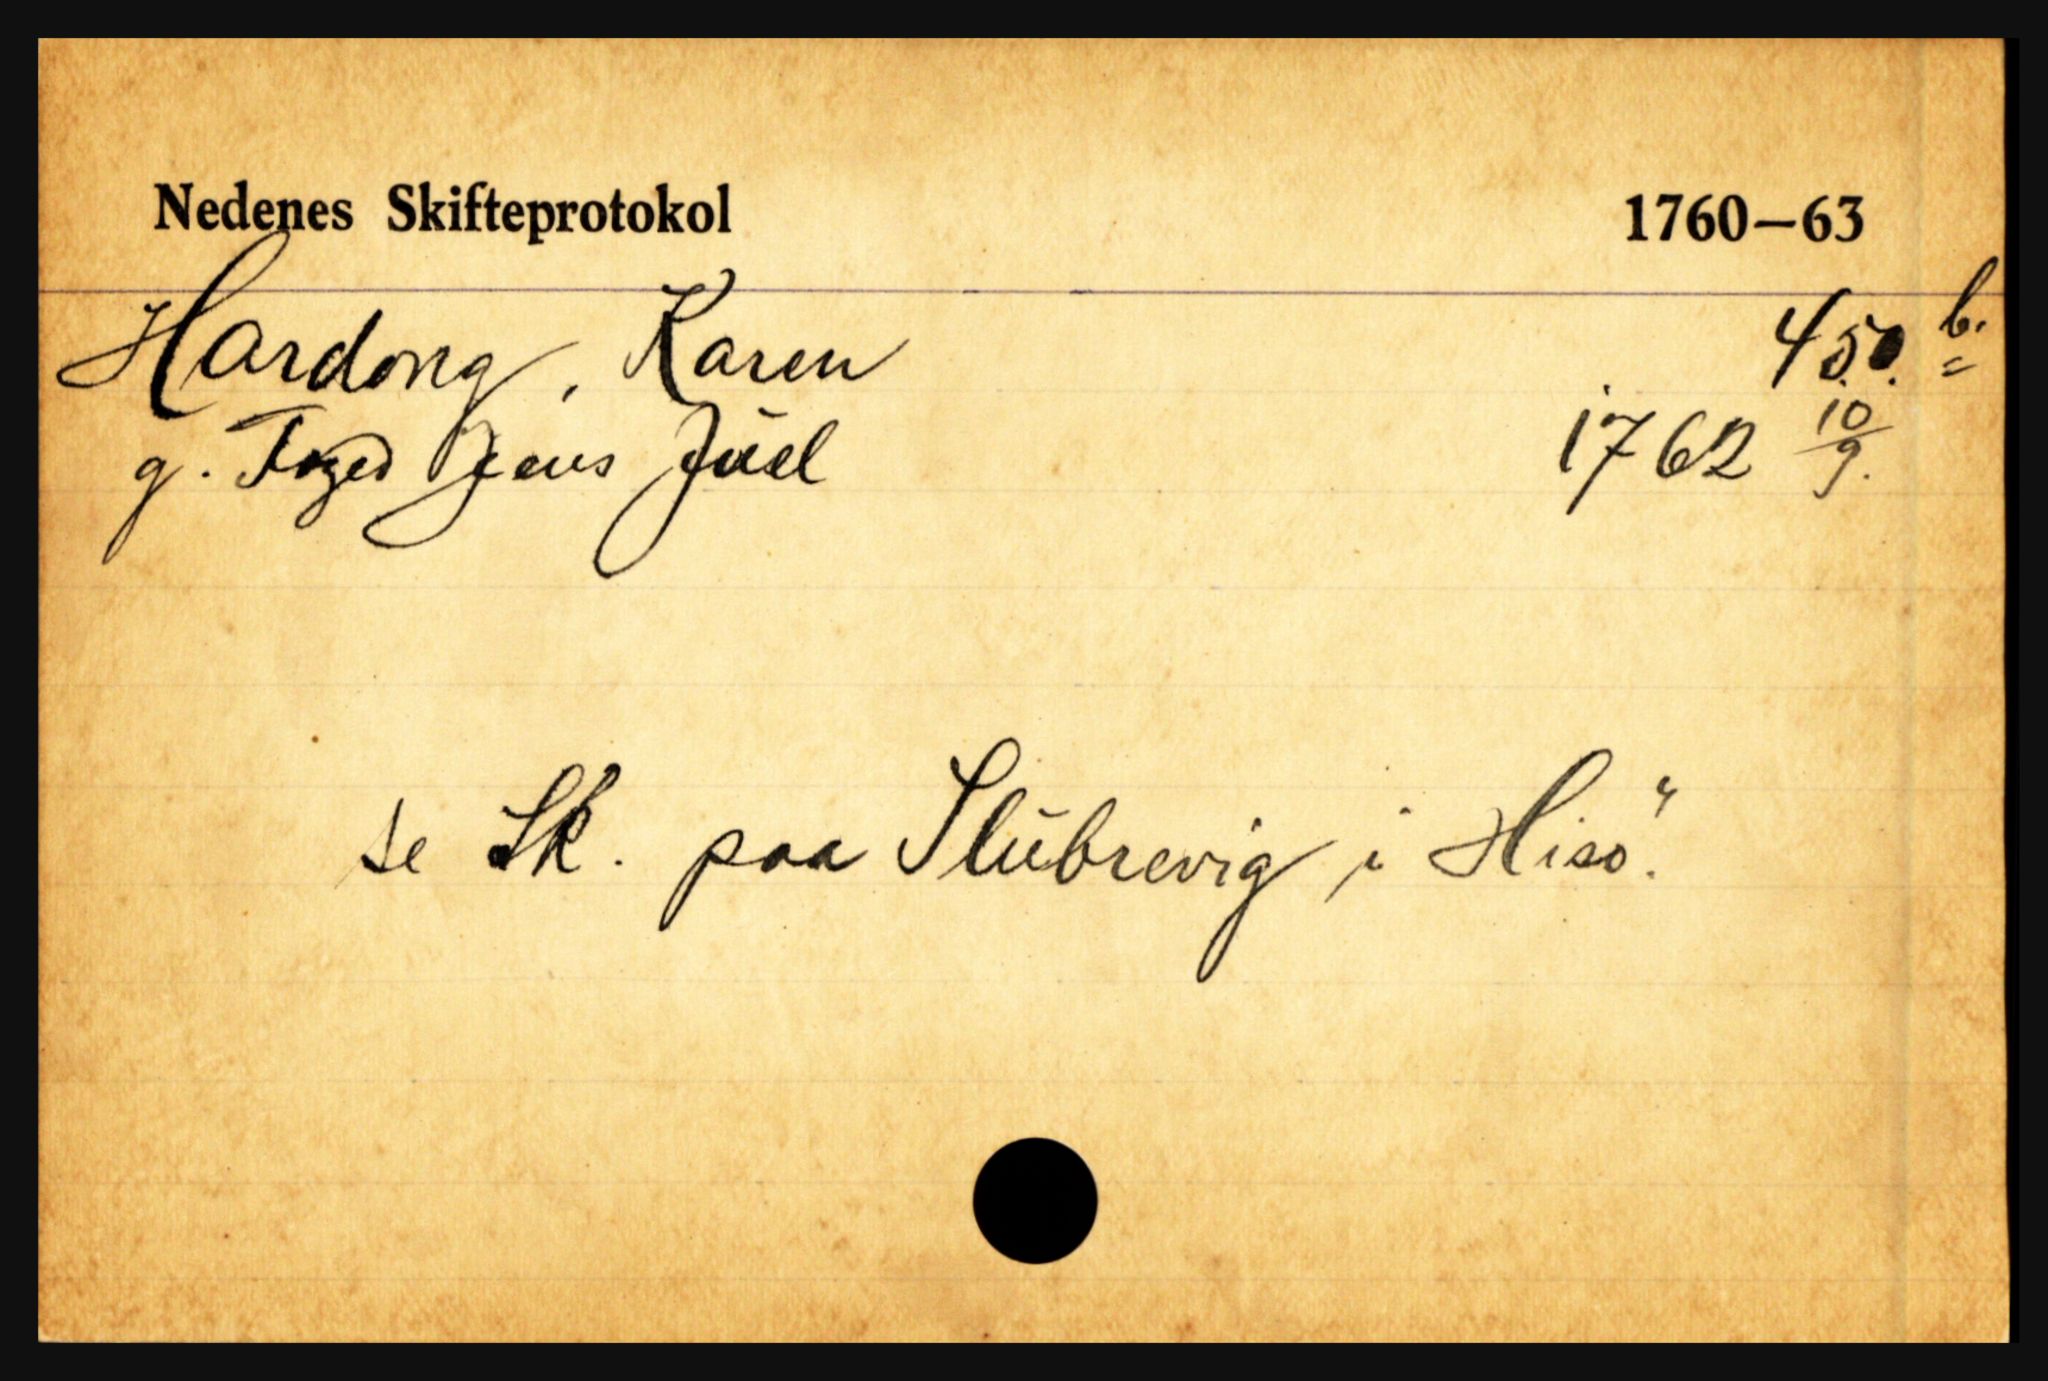 Nedenes Skifteprotokol 1760–63
Hardong, Karen 450. b.
g. Foged Jens Juel 1762 10/9.
se Sk. paa Slubrevig i Hisö.